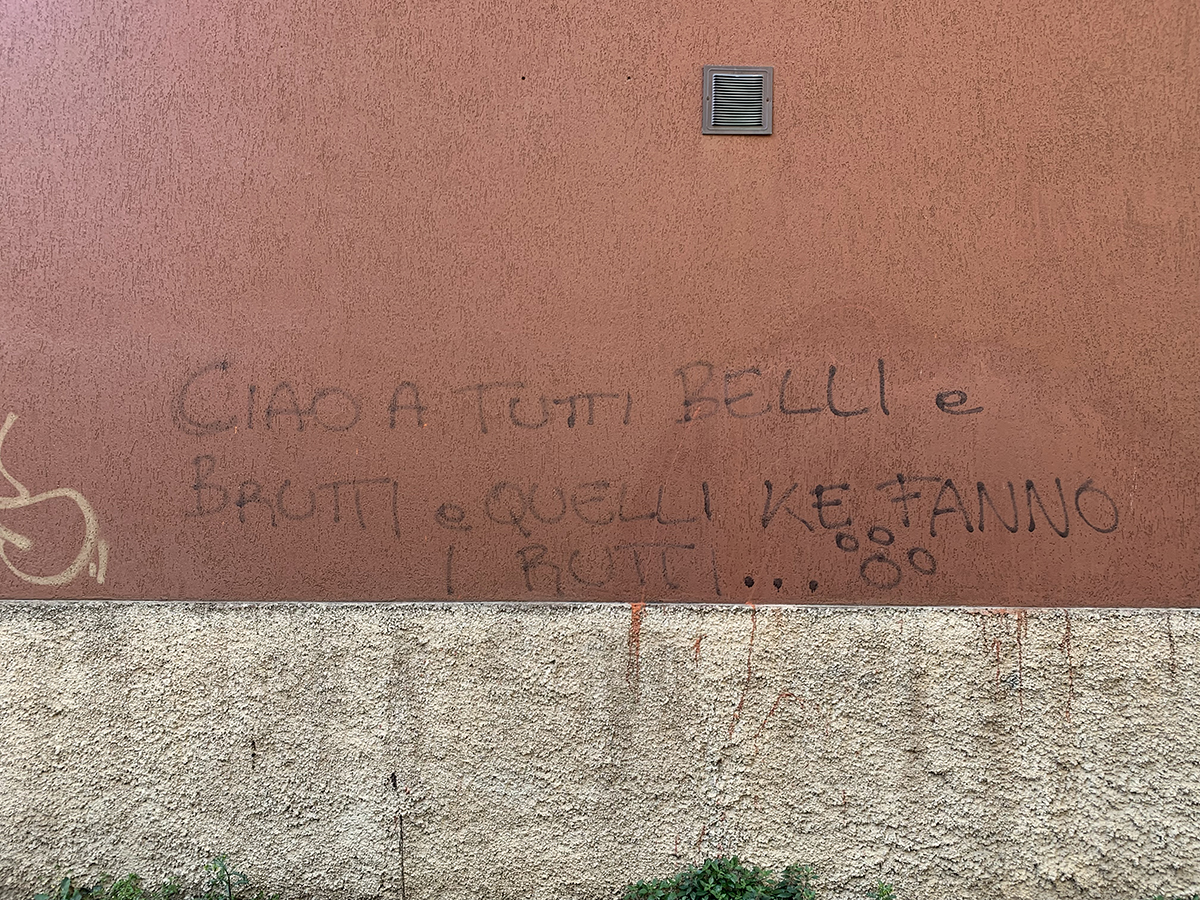 CIAO A TUTTI BELLI e
BRUTTI e QUELLI KE FANNO
I RUTTI...